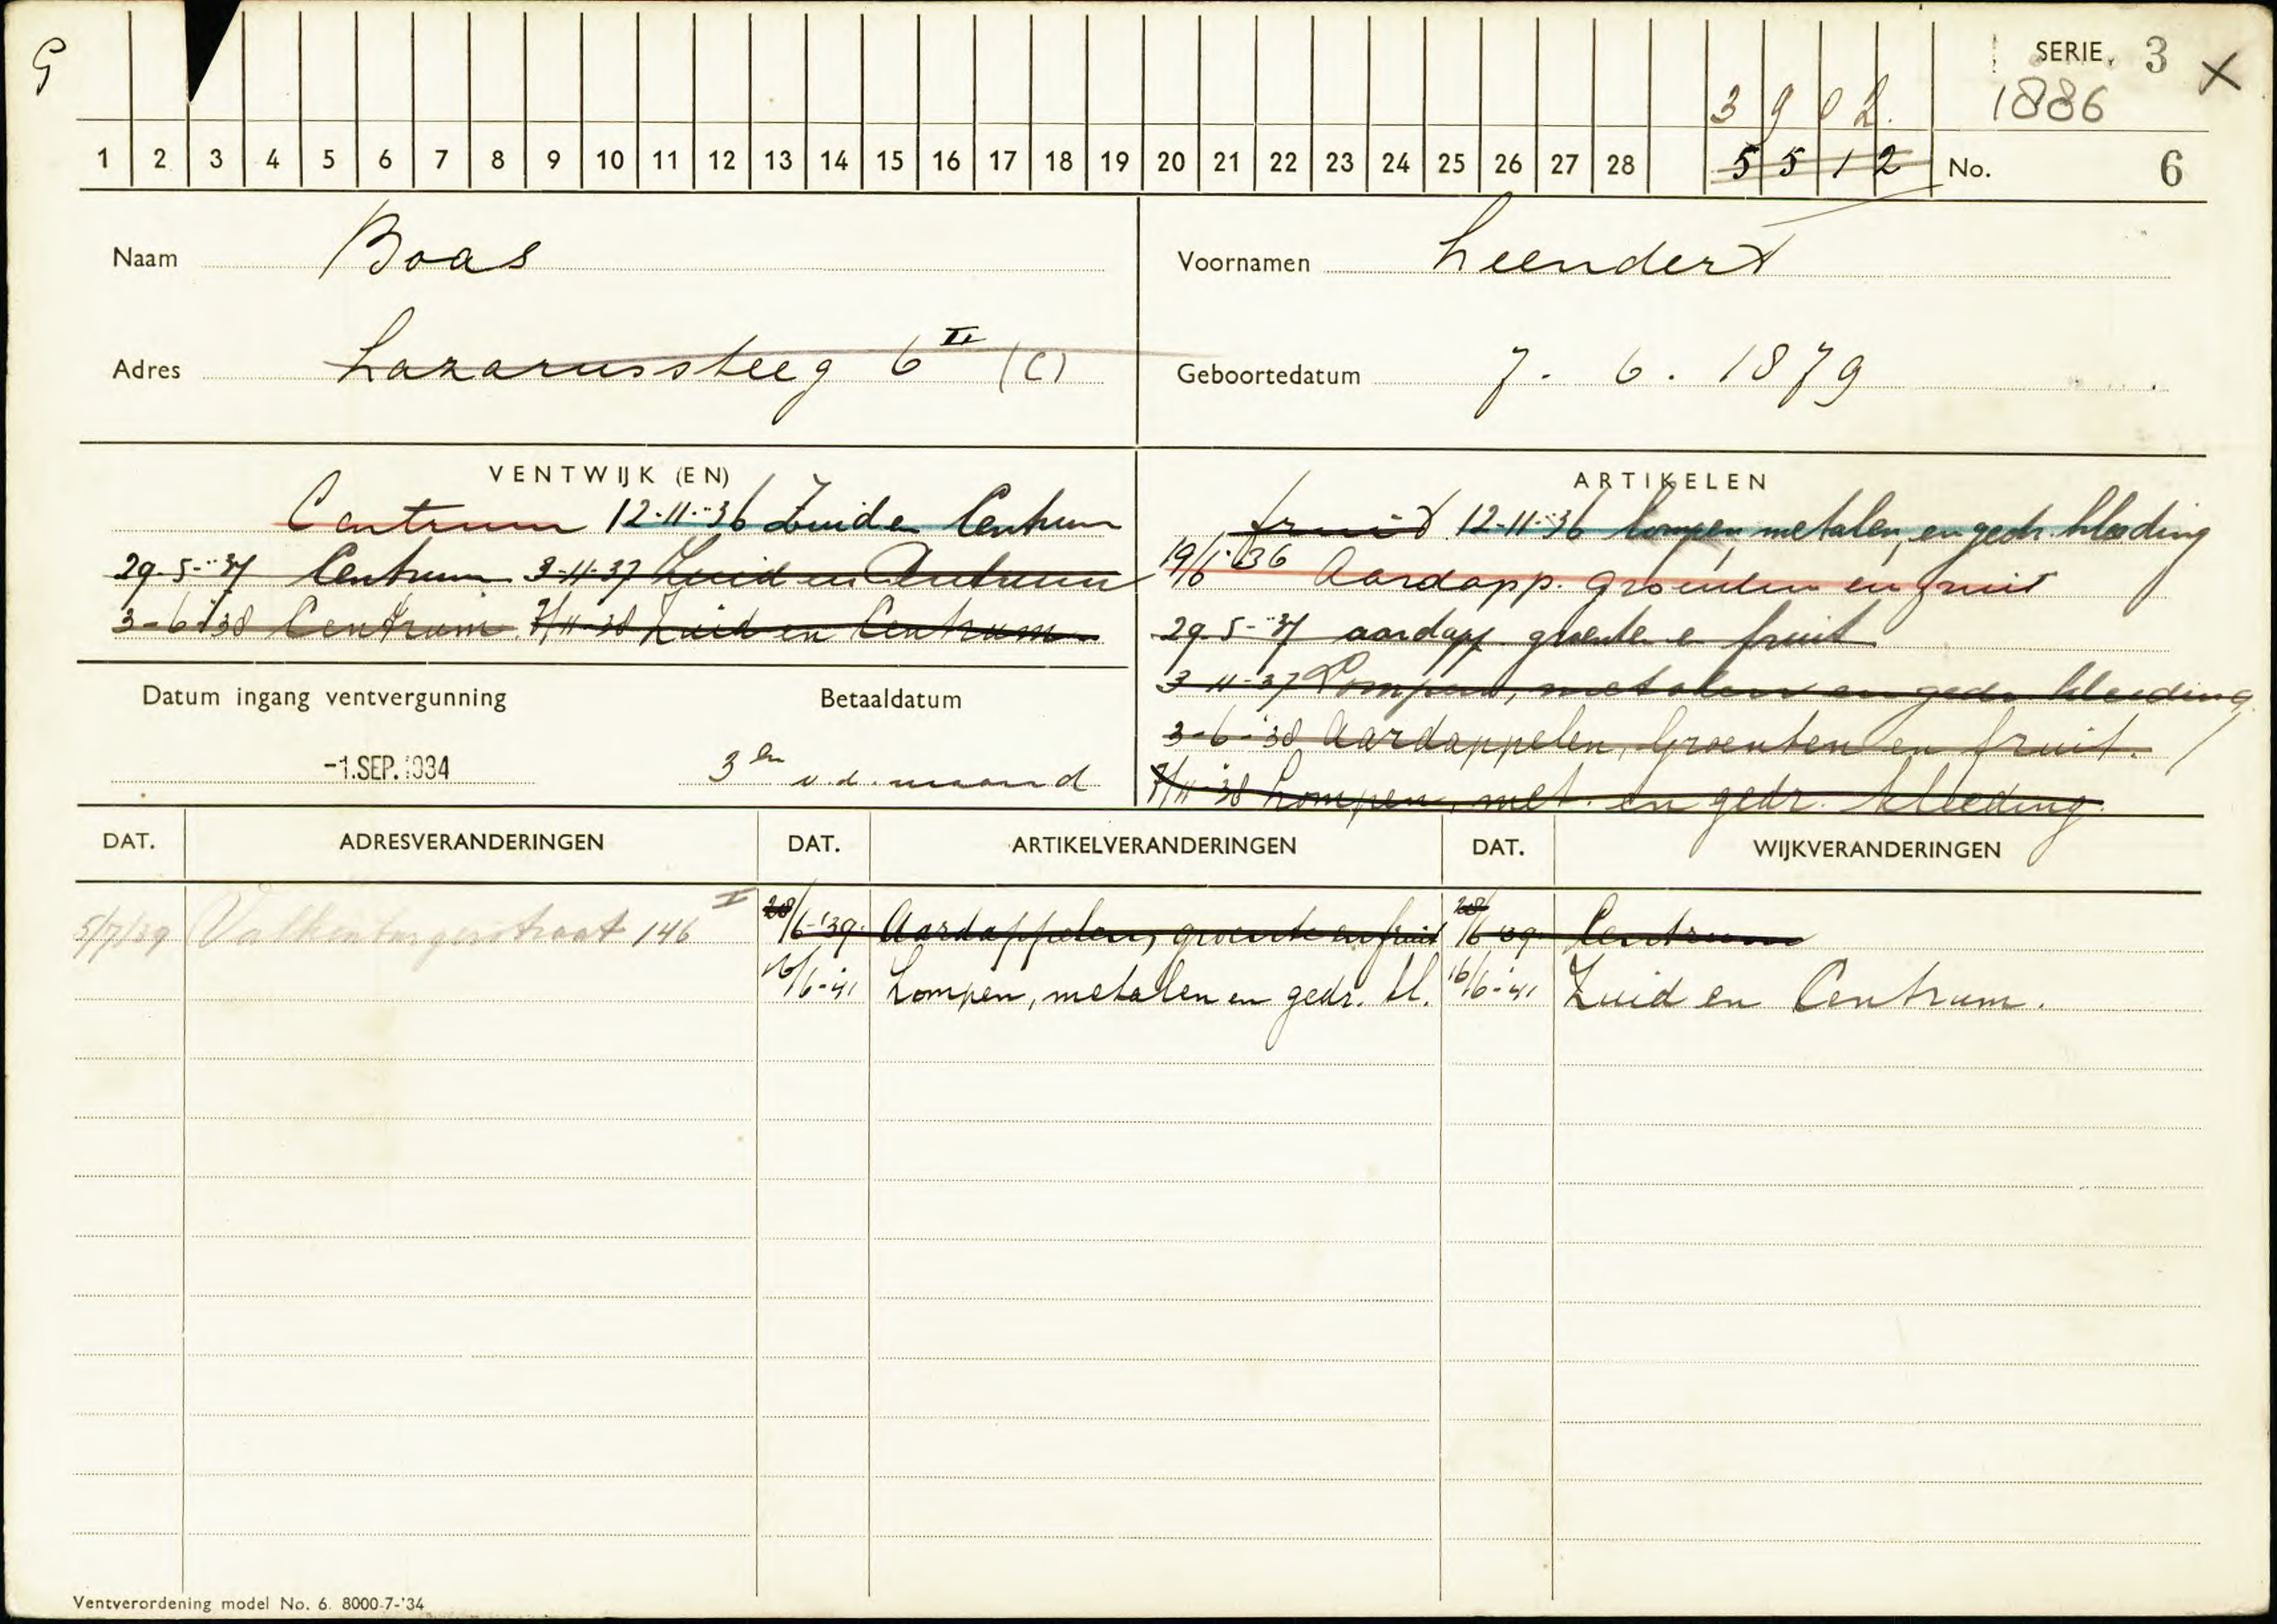 G
SERIE. 3 X
3 9 0 2. 1886
1 2 3 4 5 6 7 8 9 10 11 12 13 14 15 16 17 18 19 20 21 22 23 24 25 26 27 28 5 5 1 2 No. 6
Naam Boas
Voornamen Leendert
Adres Lazarussteeg 6 II (C)
Geboortedatum 7. 6. 1879
VENTWIJK (EN)
Centrum 12-11-'36 Zuid en Centrum
29-5-'37 Centrum 3-11-37 Zuid en Centrum
3-6-'38 Centrum 7/11-38 Zuid en Centrum
ARTIKELEN
fruit 12-11-'36 lompen, metalen, en gedr. kleding
19/6-'36 Aardapp. groenten en fruit
29-5-'37 aardapp groente e fruit
3-11-37 Lompen, metalen en gedr kleeding
3-6-'38 Aardappelen, Groenten en fruit.
7/11-'38 Lompen, met. en gedr. kleeding.
Datum ingang ventvergunning
-1.SEP.1934
Betaaldatum
3en v.d. maand
DAT. ADRESVERANDERINGEN DAT. ARTIKELVERANDERINGEN DAT. WIJKVERANDERINGEN
5/7/39 Valkenburgerstraat 146 I 20/6-'39. Aardappelen, groente en fruit 20/6-39. Centrum
16/6-'41 Lompen, metalen en gedr. kl. 16/6-'41 Zuid en Centrum.
Ventverordening model No. 6. 8000-7-'34